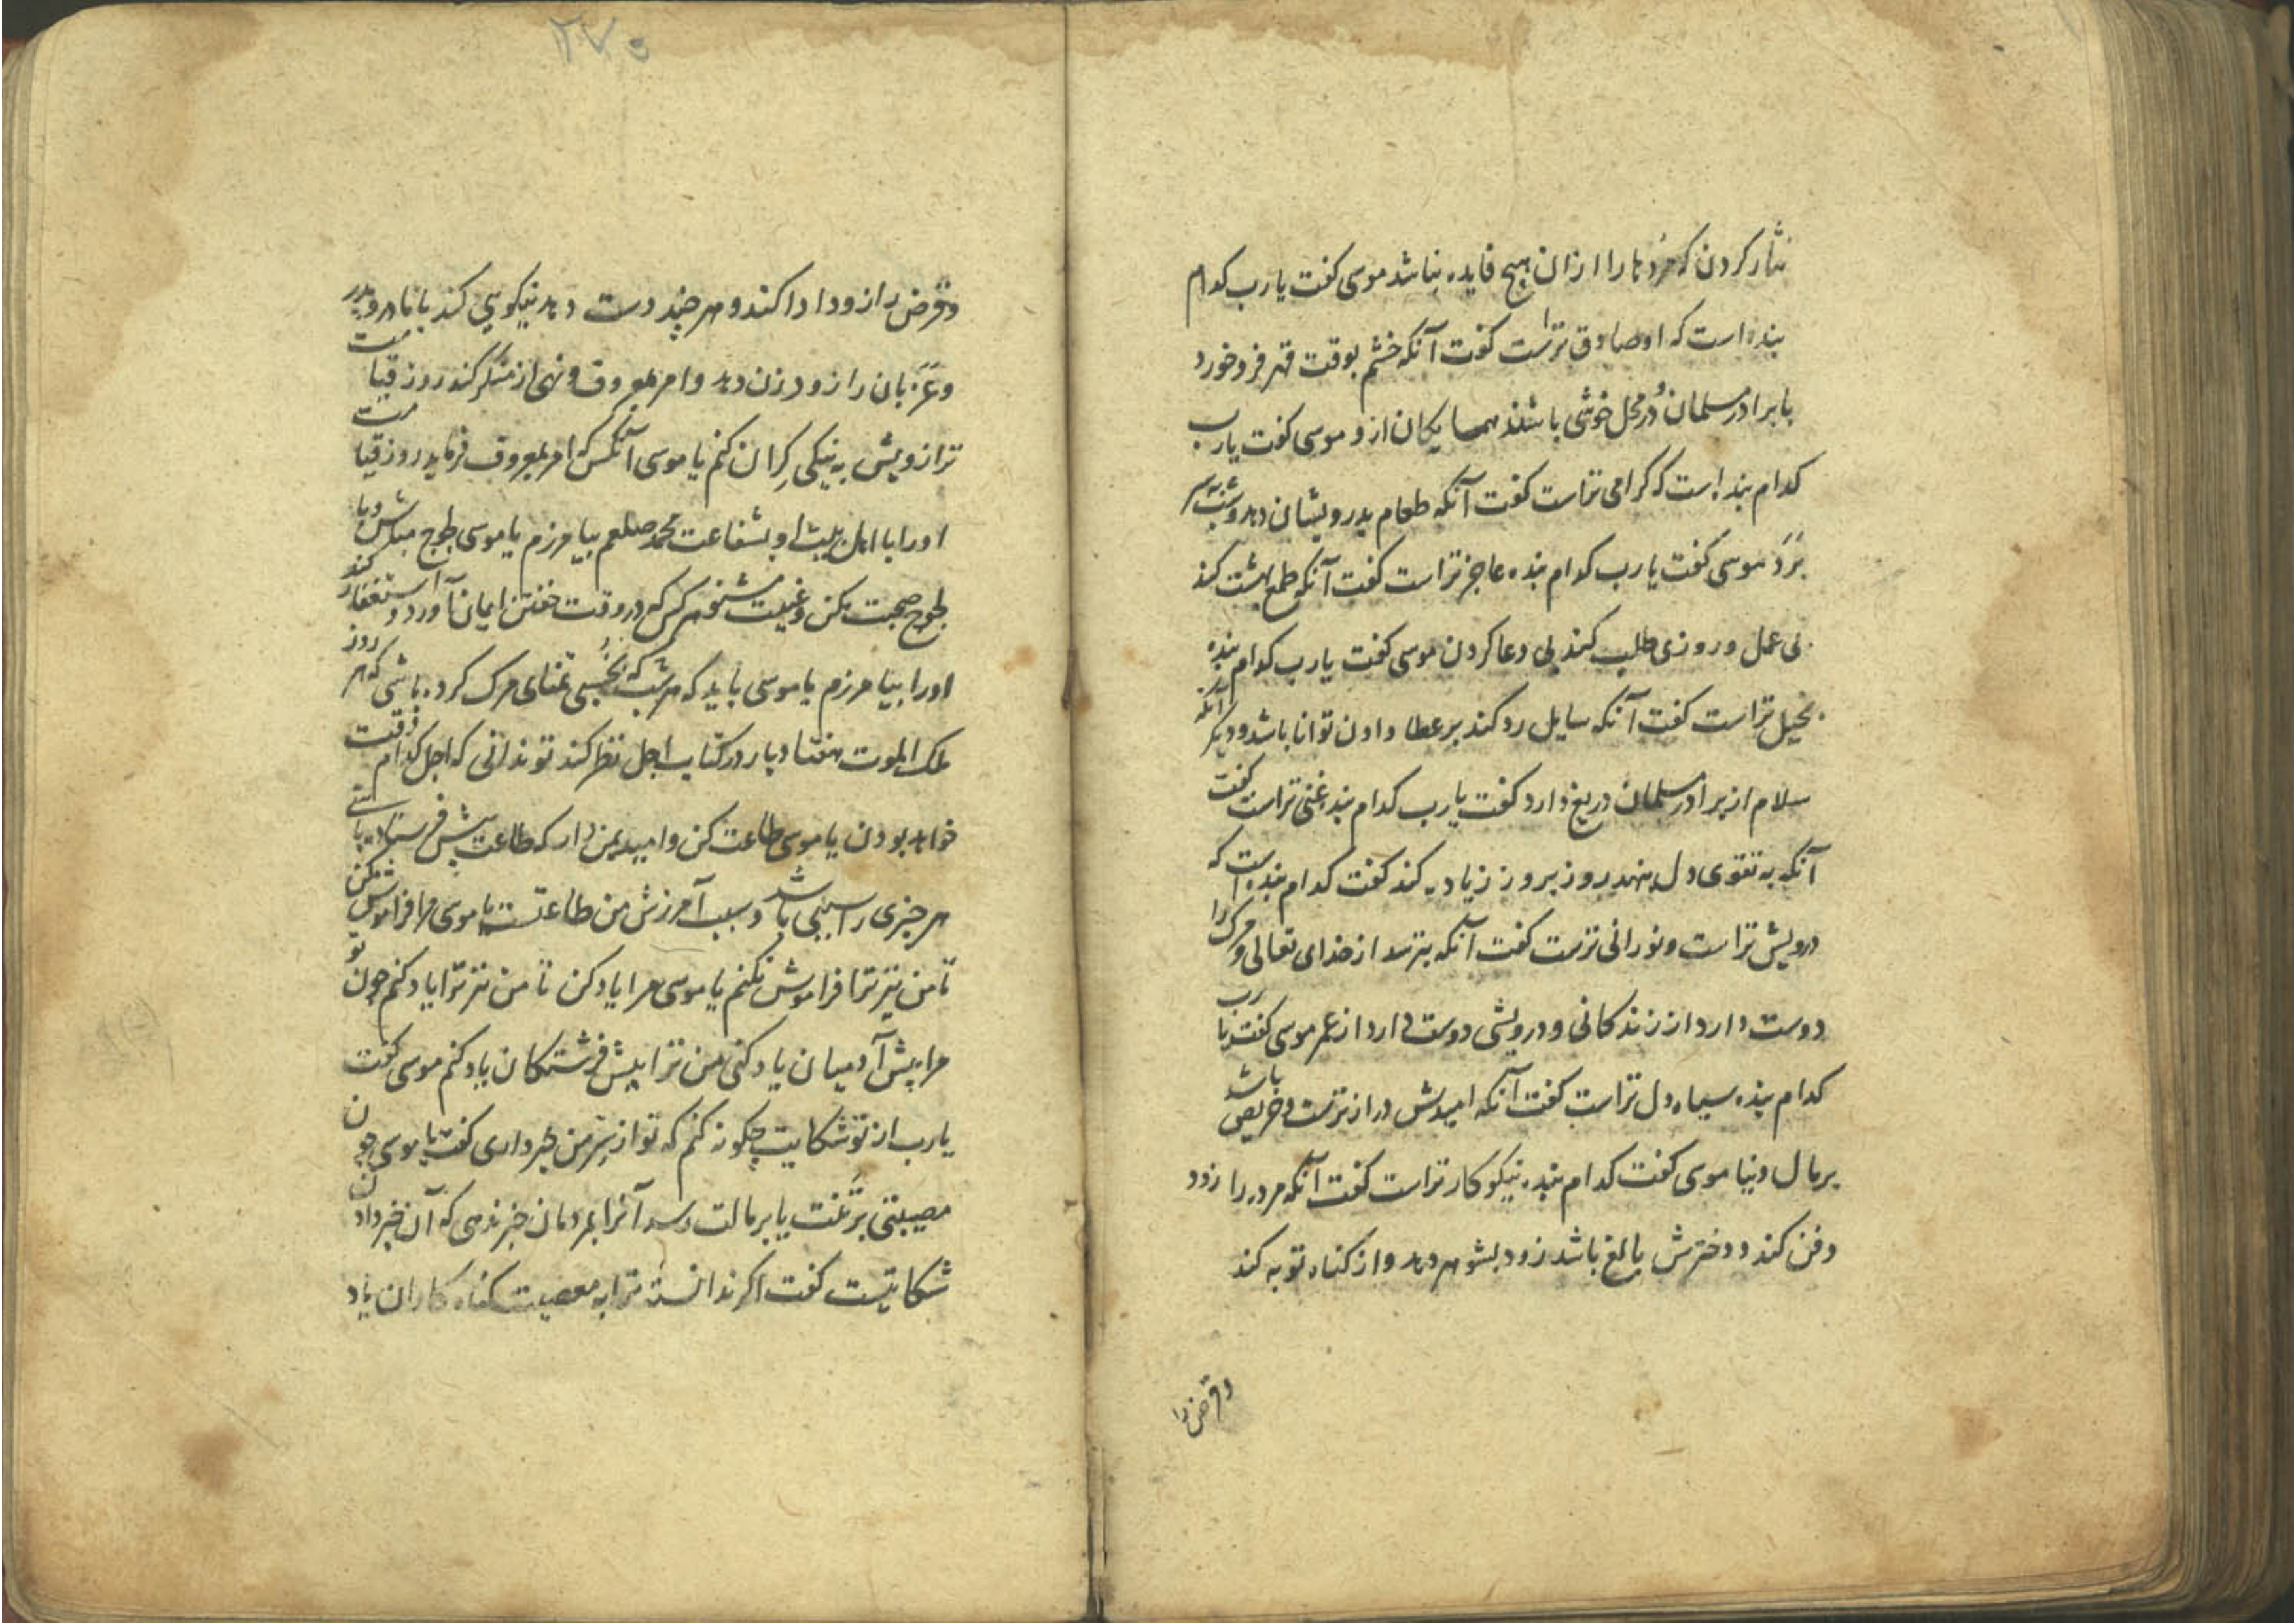 نثار کردن که مرد ها را ازان هیچ فایده نباشد موسی کفت یا رب کدام
بنده است که او صادق تر است کفت آنکه خشم بوقت قهر فرو خورد
با برادر مسلمان و در محل خوشی باشد همسایکان ازو موسی کفت یا رب
کدام بنده است که کرامی تر است کفت آنکه طعام بدرویشان دهد و شب بسر
برد موسی کفت یا رب کدام بنده عاجز تر است کفت آنکه طمع بهشت کند
بی عمل و روزی طلب کند بی دعا کردن موسی کفت یا رب کدام بنده
بخیل تر است کفت آنکه سایل رد کند بر عطا دادن توانا باشد و دیکر آنکه
سلام از برادر مسلمان دریغ دارد کفت یا رب کدام بنده غنی تر است کفت
آنکه به تقوی دل نهد روز بروز زیاده کند کفت کدام بنده است که
درویش تر است و نورانی ترست کفت آنکه بترسد از خدای تعالی و مرک را
دوست دارد از زندکانی و درویشی دوست دارد از عمر موسی کفت یا رب
کدام بنده سیاه دل تر است کفت آنکه امیدش دراز ترست و حریص باشد
بر مال دنیا موسی کفت کدام بنده نیکو کار تر است کفت آنکه مرده را زود
دفن کند و دخترش بالغ باشد زود بشوهر دهد و از کناه توبه کند
و قرض را
۲۷۵
و قرض را زود ادا کند و هر چند دست دهد نیکویی کند با مادر و پدر
و عزبان را زود زن دهد و امر بمعروف و نهی از منکر کند روز قیامت
ترازویش به نیکی کران کنم یا موسی آنکس که امر بمعروف فرماید روز قیامت
او را با اهل بیتش او بشفاعت محمد صلعم بیامرزم یا موسی طوج مباش و با
طوج صحبت مکن و غیبت مشنو هر کس که در وقت خفتن ایمان آورد و استغفار کند
او را بیامرزم یا موسی باید که هر شب که بخسبی تمنای مرک کرده باشی که هر روز
ملک الموت هفتاد بار در کتاب اجل نظر کند تو ندانی که اجل کدام وقت
خواهد بودن یا موسی طاعت کن و امید بمن دار که طاعت پیش فرستاده بایستی
هر چیزی را سببی باشد و سبب آمرزش من طاعتست یا موسی مرا فراموش مکن
تا من نیز ترا فراموش نکنم یا موسی مرا یاد کن تا من نیز ترا یاد کنم چون تو
مرا پیش آدمیان یاد کنی من ترا پیش فرشتکان یاد کنم موسی کفت
یا رب از تو شکایت چکونه کنم که تو از سر من خبر داری کفت یا موسی چون
مصیبتی بر تنت یا بر مالت رسد آنرا بمردمان خبر ندهی که آن خبر دادن
شکایتست کفت اکر ندانسته ترا به معصیت کناه کاران یاد